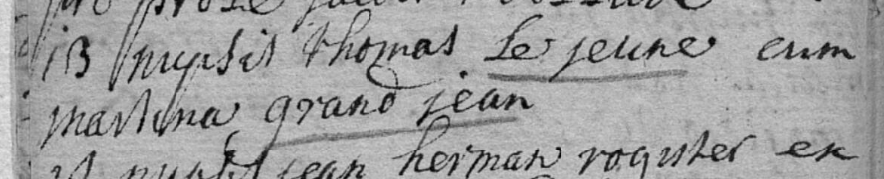 13 nupsit thomas Le jeune cum
martina grand jean
nupsit jean herman rogister ex